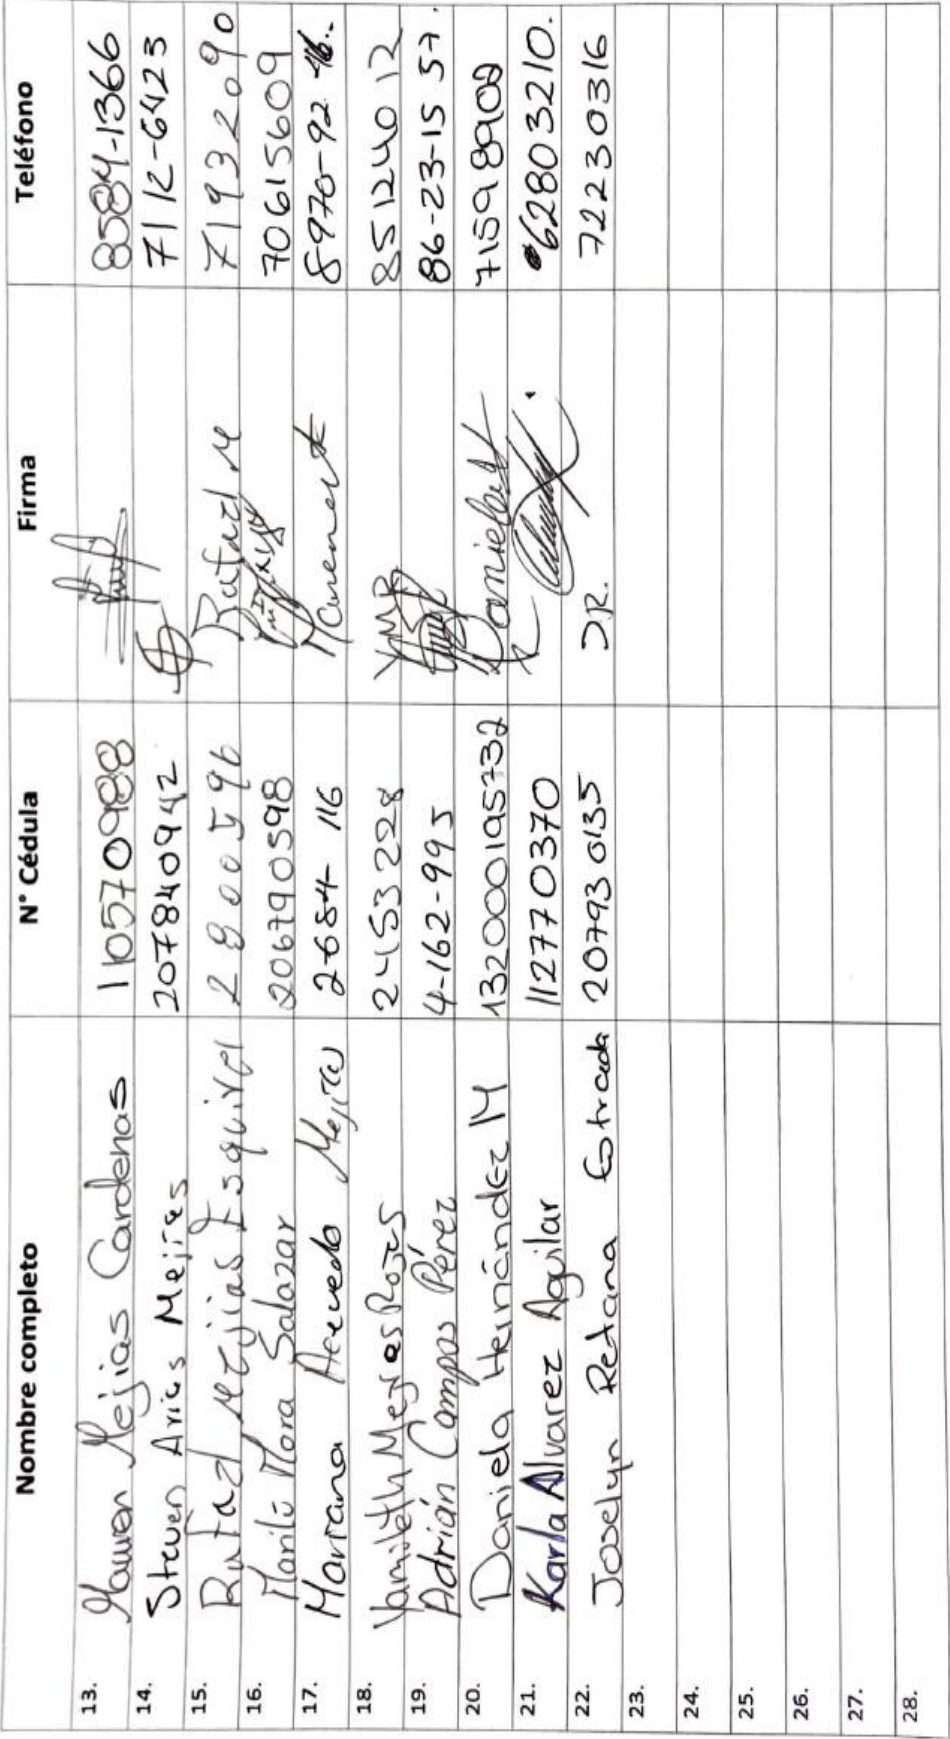 Nombre completo N° Cédula Firma Teléfono
13. Mejias Cardenas 110570988 8584-1366
14. Steven Arias Mejias 207840942 7112-6423
15. Rafael Mejias Esquivel 2 800 596 Rafael M 71932090
16. Marilú Mora Salazar 206790598 70615609
17. Mariana Acevedo Mejía 2684 116 8970-92 46.
18. Yamileth Mejias Rojas 2453228 YMR 85124012
19. Adrián Campos Pérez 4-162-995 86-23-15 57.
20. Daniela Hernández M 132000195732 Daniela 71598902
21. Karla Alvarez Aguilar 112770370 62803210.
22. Joselyn Retana Estrada 207930135 J.R. 72230316
23.
24.
25.
26.
27.
28.